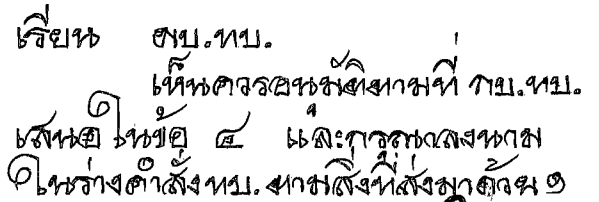 เรียน ผบ.ทบ.
เห็นควรอนุมัติตามที่ กบ.ทบ.
เสนอในข้อ ๔ และกรุณาลงนาม
ในร่างคำสั่ง ทบ. ตามสิ่งที่ส่งมาด้วย ๑